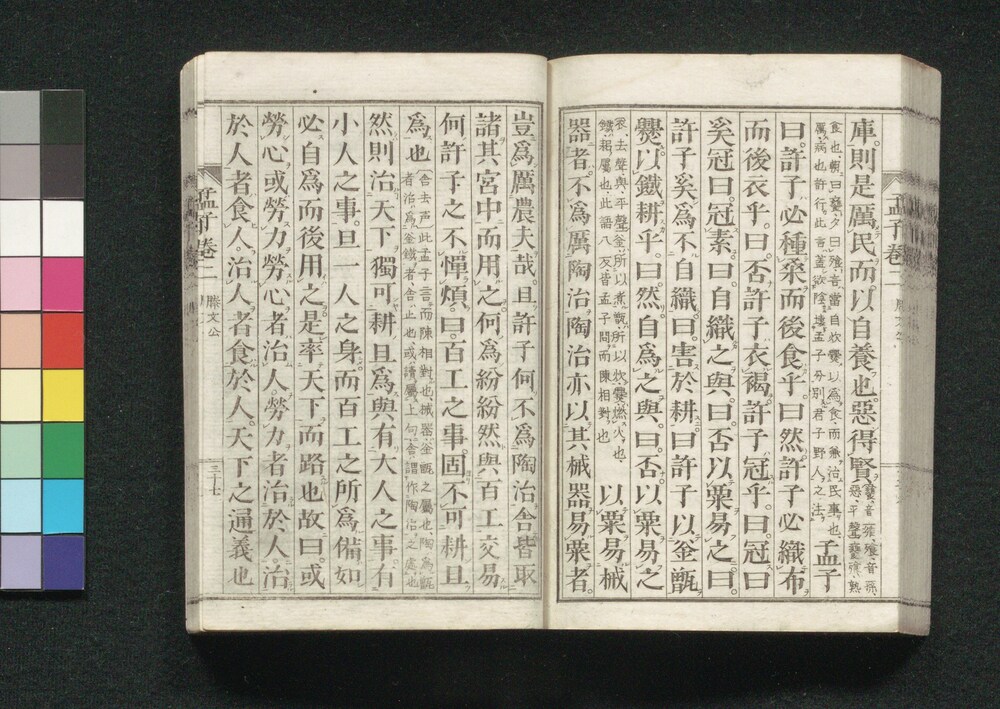 庫則是厲民而以自養也惡得賢
饔音雍飱音孫
惡平聲饔飱熟
食也朝曰饔夕曰飱言當自炊爨以爲食而兼治民事也
厲病也許行此言蓋欲陰壞孟子分別君子野人之法
孟子
曰許子必種粟而後食乎曰然許子必織布
而後衣乎曰否許子衣褐許子冠乎曰冠曰
奚冠曰冠素曰自織之與曰否以粟易之曰
許子奚爲不自織曰害於耕曰許子以釜甑
爨以鐵耕乎曰然自爲之與曰否以粟易之
衣去聲與平聲釜所以煮甑所以炊爨燃火也
鐵耜屬也此語八反皆孟子問而陳相對也
以粟易械
器者不爲厲陶冶陶冶亦以其械器易粟者
豈爲厲農夫哉且許子何不爲陶冶舍皆取
諸其宮中而用之何爲紛紛然與百工交易
何許子之不憚煩曰百工之事固不可耕且
爲也
舍去声此孟子言而陳相對也械器釜甑之屬也陶爲甑
者冶爲釜鐵者舍止也或讀屬上句舍謂作陶冶之處也
然則治天下獨可耕且爲與有大人之事有
小人之事且一人之身而百工之所爲備如
必自爲而後用之是率天下而路也故曰或
勞心或勞力勞心者治人勞力者治於人治
於人者食人治人者食於人天下之通義也
孟子卷二
滕文公
三十七
孟子卷二